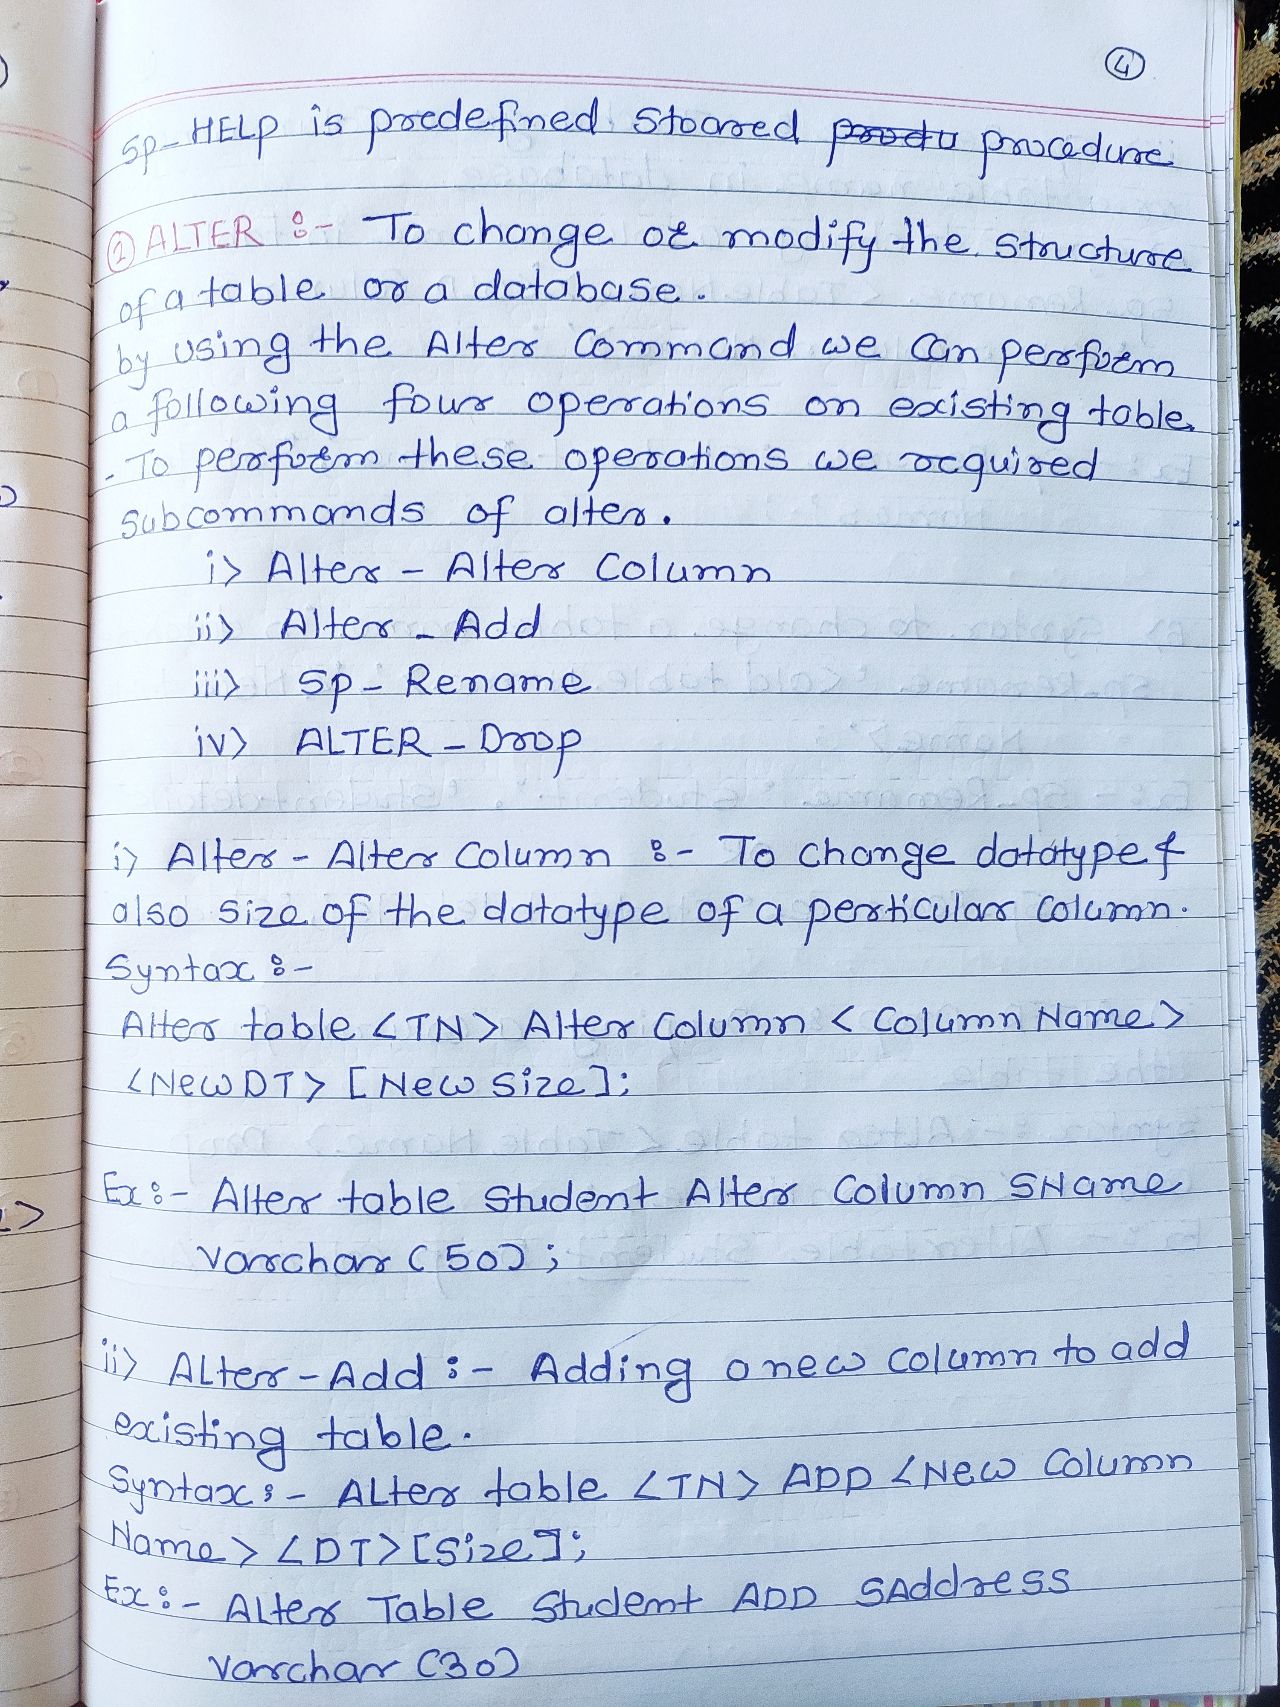 4
Sp-HELP is predefined Stoared produ procedure
① ALTER :- To change or modify the structure
of a table or a database.
by using the Alter Command we can perform
a following four operations on existing table.
- To perform these operations we required
Subcommands of alter.
i> Alter - Alter Column
ii> Alter - Add
iii> Sp - Rename
iv> ALTER - Drop
i> Alter - Alter Column :- To change datatype &
also size of the datatype of a perticular column.
Syntax :-
Alter table <TN> Alter Column < Column Name >
<New DT> [New size];
Ex :- Alter table Student Alter Column SName
varchar (50);
ii> ALter - Add :- Adding a new column to add
existing table.
Syntax :- ALter table <TN> ADD <New Column
Name> <DT> [Size];
Ex :- ALter Table Student ADD SAddress
varchar (30)